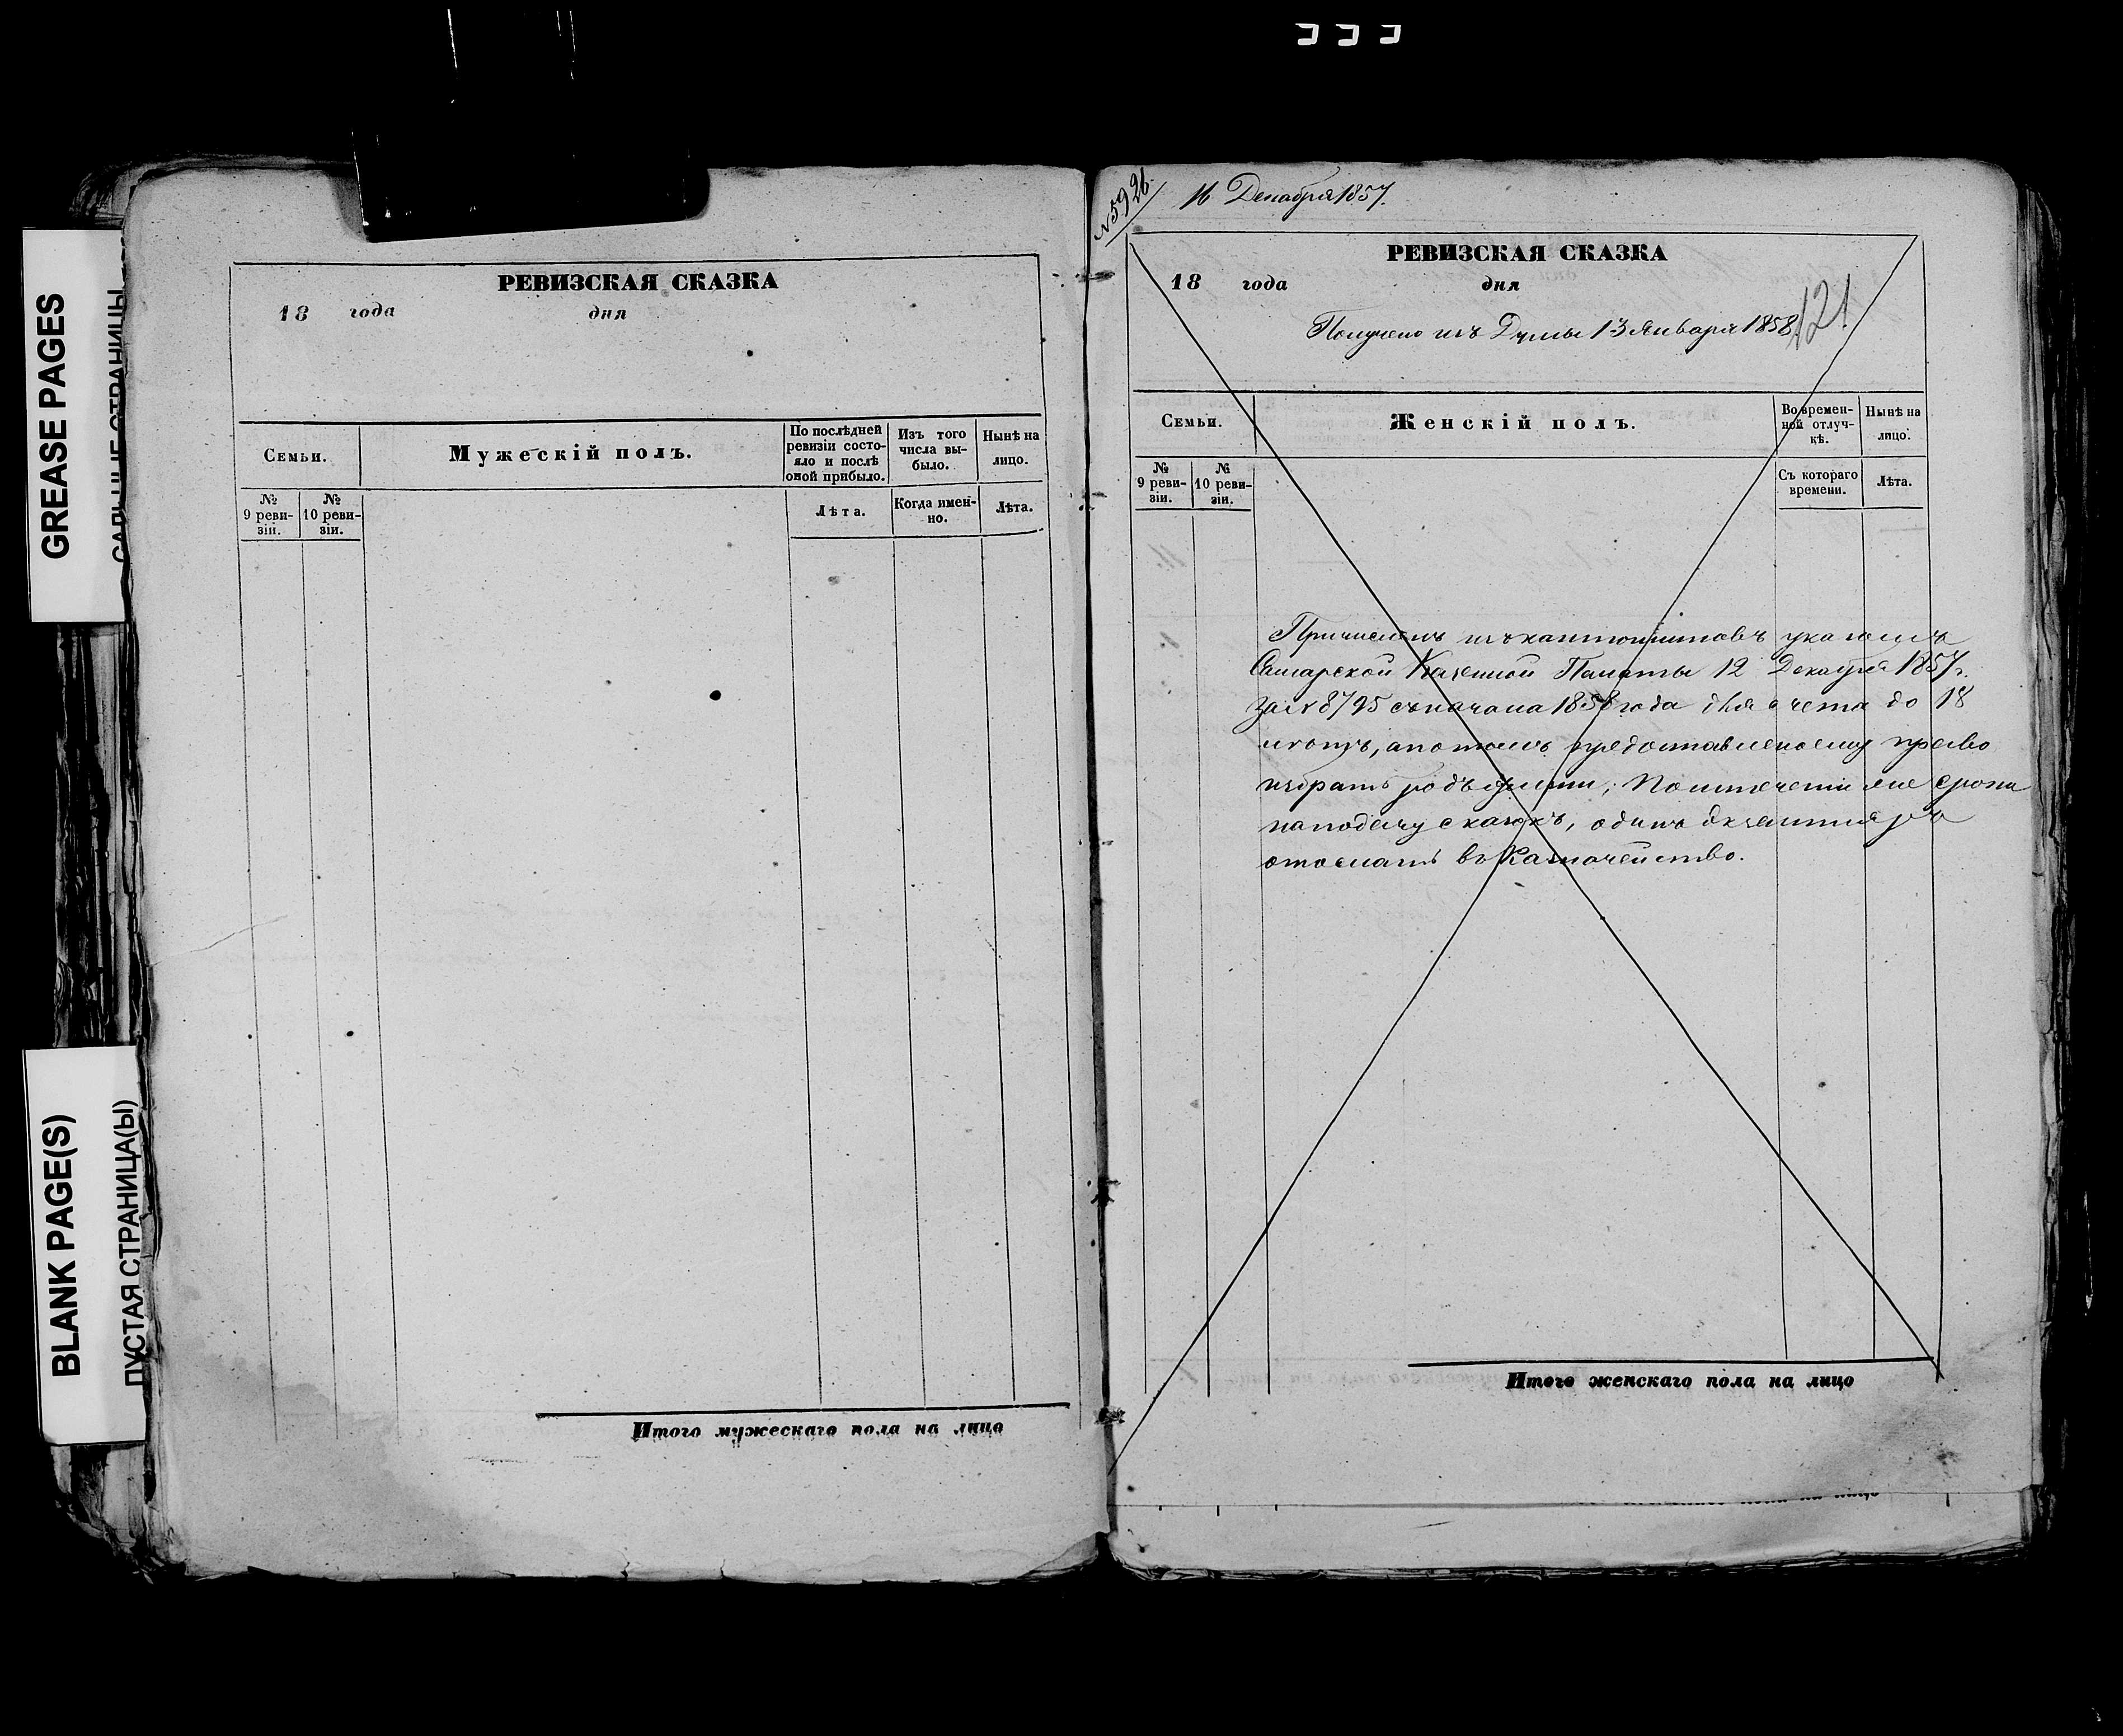 GREASE PAGES
САЛЬНЫЕ СТРАНИЦЫ
BLANK PAGE(S)
ПУСТАЯ СТРАНИЦА(Ы)
РЕВИЗСКАЯ СКАЗКА
18 года дня
Семьи.
Мужескій полъ.
По послѣдней ревизіи состояло и послѣ оной прибыло.
Изъ того числа выбыло.
Нынѣ на лицо.
№ 9 ревизіи.
№ 10 ревизіи.
Лѣта.
Когда именно.
Лѣта.
Итого мужескаго пола на лицо
№ 5926
16 Декабря 1857.
РЕВИЗСКАЯ СКАЗКА
18 года дня
121
Получено изъ Думы 13 Января 1858
Семьи.
Женскій полъ.
Во временной отлучкѣ.
Нынѣ на лицо.
№ 9 ревизіи.
№ 10 ревизіи.
Съ котораго времени.
Лѣта.
Причисленъ изъ кантонистовъ указомъ
Самарской Казенной Палаты 12 Декабря 1857 г.
за № 8795 съ начала 1858 года для счета до 18
лѣтъ, а потомъ предоставлено ему право
избрать родъ жизни; По истеченіи же срока
на подачу сказокъ, одинъ экземпляръ
отослать въ Казначейство.
Итого женскаго пола на лицо